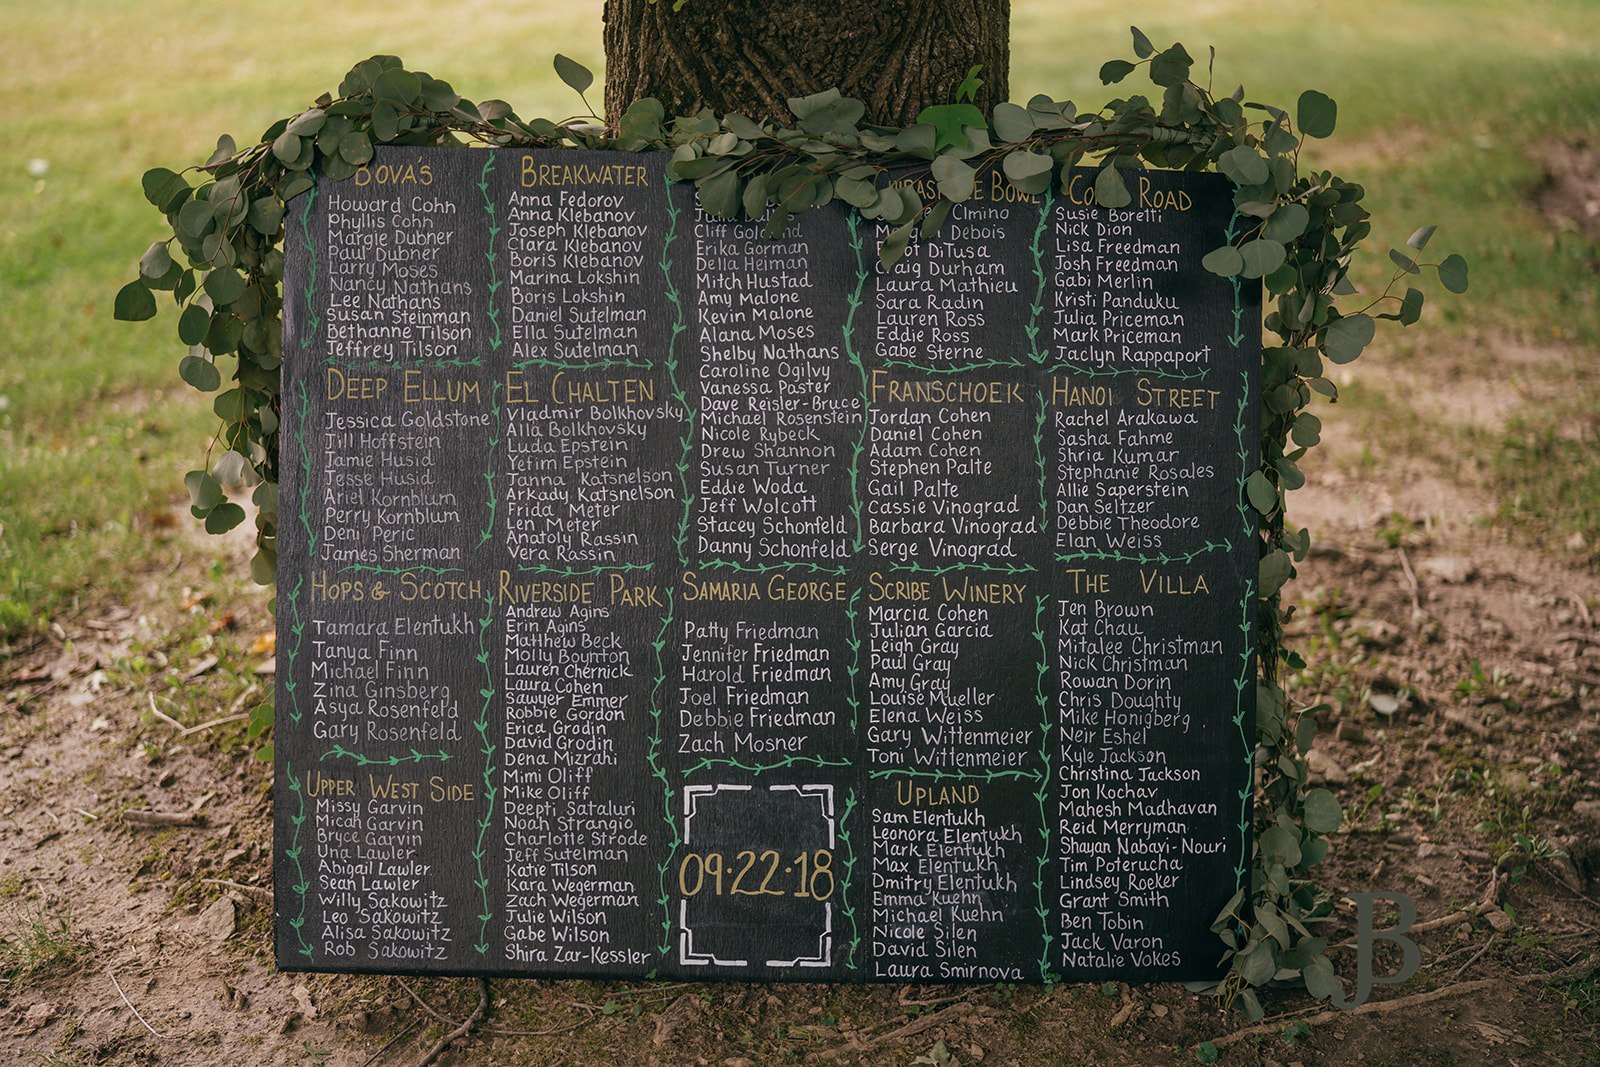 BOVA'S
Howard Cohn
Phyllis Cohn
Margie Dubner
Paul Dubner
Larry Moses
Nancy Nathans
Lee Nathans
Susan Steinman
Bethanne Tilson
Jeffrey Tilson
BREAKWATER
Anna Fedorov
Anna Klebanov
Joseph Klebanov
Clara Klebanov
Boris Klebanov
Marina Lokshin
Boris Lokshin
Daniel Sutelman
Ella Sutelman
Alex Sutelman
Julia
Cliff
Erika Gorman
Della Heiman
Mitch Hustad
Amy Malone
Kevin Malone
Alana Moses
Shelby Nathans
Caroline Ogilvy
Vanessa Paster
Dave Reisler-Bruce
Michael Rosenstein
Nicole Rybeck
Drew Shannon
Susan Turner
Eddie Woda
Jeff Wolcott
Stacey Schonfeld
Danny Schonfeld
BOWL
Cimino
Debois
DiTusa
Craig Durham
Laura Mathieu
Sara Radin
Lauren Ross
Eddie Ross
Gabe Sterne
ROAD
Susie Boretti
Nick Dion
Lisa Freedman
Josh Freedman
Gabi Merlin
Kristi Panduku
Julia Priceman
Mark Priceman
Jaclyn Rappaport
DEEP ELLUM
Jessica Goldstone
Jill Hoffstein
Jamie Husid
Jesse Husid
Ariel Kornblum
Perry Kornblum
Deni Peric
James Sherman
EL CHALTEN
Vladmir Bolkhovsky
Alla Bolkhovsky
Luda Epstein
Yefim Epstein
Janna Katsnelson
Arkady Katsnelson
Frida Meter
Len Meter
Anatoly Rassin
Vera Rassin
FRANSCHOEK
Jordan Cohen
Daniel Cohen
Adam Cohen
Stephen Palte
Gail Palte
Cassie Vinograd
Barbara Vinograd
Serge Vinograd
HANOI STREET
Rachel Arakawa
Sasha Fahme
Shria Kumar
Stephanie Rosales
Allie Saperstein
Dan Seltzer
Debbie Theodore
Elan Weiss
HOPS & SCOTCH
Tamara Elentukh
Tanya Finn
Michael Finn
Zina Ginsberg
Asya Rosenfeld
Gary Rosenfeld
RIVERSIDE PARK
Andrew Agins
Erin Agins
Matthew Beck
Molly Boynton
Lauren Chernick
Laura Cohen
Sawyer Emmer
Robbie Gordon
Erica Grodin
David Grodin
Dena Mizrahi
Mimi Oliff
Mike Oliff
Deepti Sataluri
Noah Strangio
Charlotte Strode
Jeff Sutelman
Katie Tilson
Kara Wegerman
Zach Wegerman
Julie Wilson
Gabe Wilson
Shira Zar-Kessler
SAMARIA GEORGE
Patty Friedman
Jennifer Friedman
Harold Friedman
Joel Friedman
Debbie Friedman
Zach Mosner
SCRIBE WINERY
Marcia Cohen
Julian Garcia
Leigh Gray
Paul Gray
Amy Gray
Louise Mueller
Elena Weiss
Gary Wittenmeier
Toni Wittenmeier
THE VILLA
Jen Brown
Kat Chau
Mitalee Christman
Nick Christman
Rowan Dorin
Chris Doughty
Mike Honigberg
Neir Eshel
Kyle Jackson
Christina Jackson
Jon Kochav
Mahesh Madhavan
Reid Merryman
Shayan Nabavi-Nouri
Tim Poterucha
Lindsey Roeker
Grant Smith
Ben Tobin
Jack Varon
Natalie Vokes
UPPER WEST SIDE
Missy Garvin
Micah Garvin
Bryce Garvin
Una Lawler
Abigail Lawler
Sean Lawler
Willy Sakowitz
Leo Sakowitz
Alisa Sakowitz
Rob Sakowitz
09·22·18
UPLAND
Sam Elentukh
Leonora Elentukh
Mark Elentukh
Max Elentukh
Dmitry Elentukh
Emma Kuehn
Michael Kuehn
Nicole Silen
David Silen
Laura Smirnova
JB